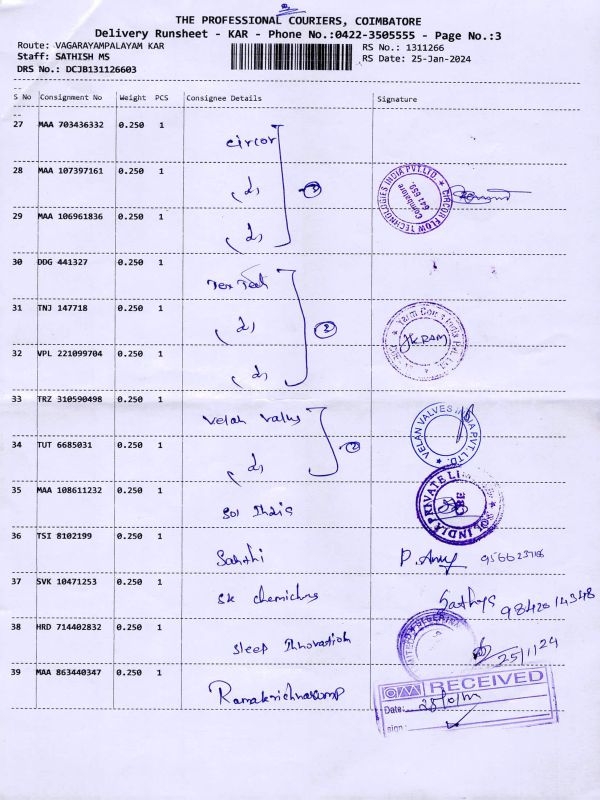 THE PROFESSIONAL COURIERS, COIMBATORE
Delivery Runsheet - KAR - Phone No.:0422-3505555 - Page No.:3
Route: VAGARAYAMPALAYAM KAR
RS No.: 1311266
Staff: SATHISH MS
RS Date: 25-Jan-2024
DRS No.: DCJB131126603
S No Consignment No Weight PCS Consignee Details Signature
27 MAA 703436332 0.250 1 circor
28 MAA 107397161 0.250 1
CIRCOR FLOW TECHNOLOGIES INDIA PVT. LTD. Coimbatore 641 659.
29 MAA 106961836 0.250 1
30 DDG 441327 0.250 1
31 TNJ 147718 0.250 1
32 VPL 221099704 0.250 1
33 TRZ 310590498 0.250 1 Velan Valves
VELAN VALVES INDIA PVT. LTD.
34 TUT 6685031 0.250 1
35 MAA 108611232 0.250 1 Sol India
SOL INDIA PRIVATE LIMITED CBE
36 TSI 8102199 0.250 1 Sakthi
37 SVK 10471253 0.250 1 SK chemicins
Sathya 9842014348
38 HRD 714402832 0.250 1 Sleep Innovation
25/1/24
39 MAA 863440347 0.250 1
RECEIVED
Date:
sign: